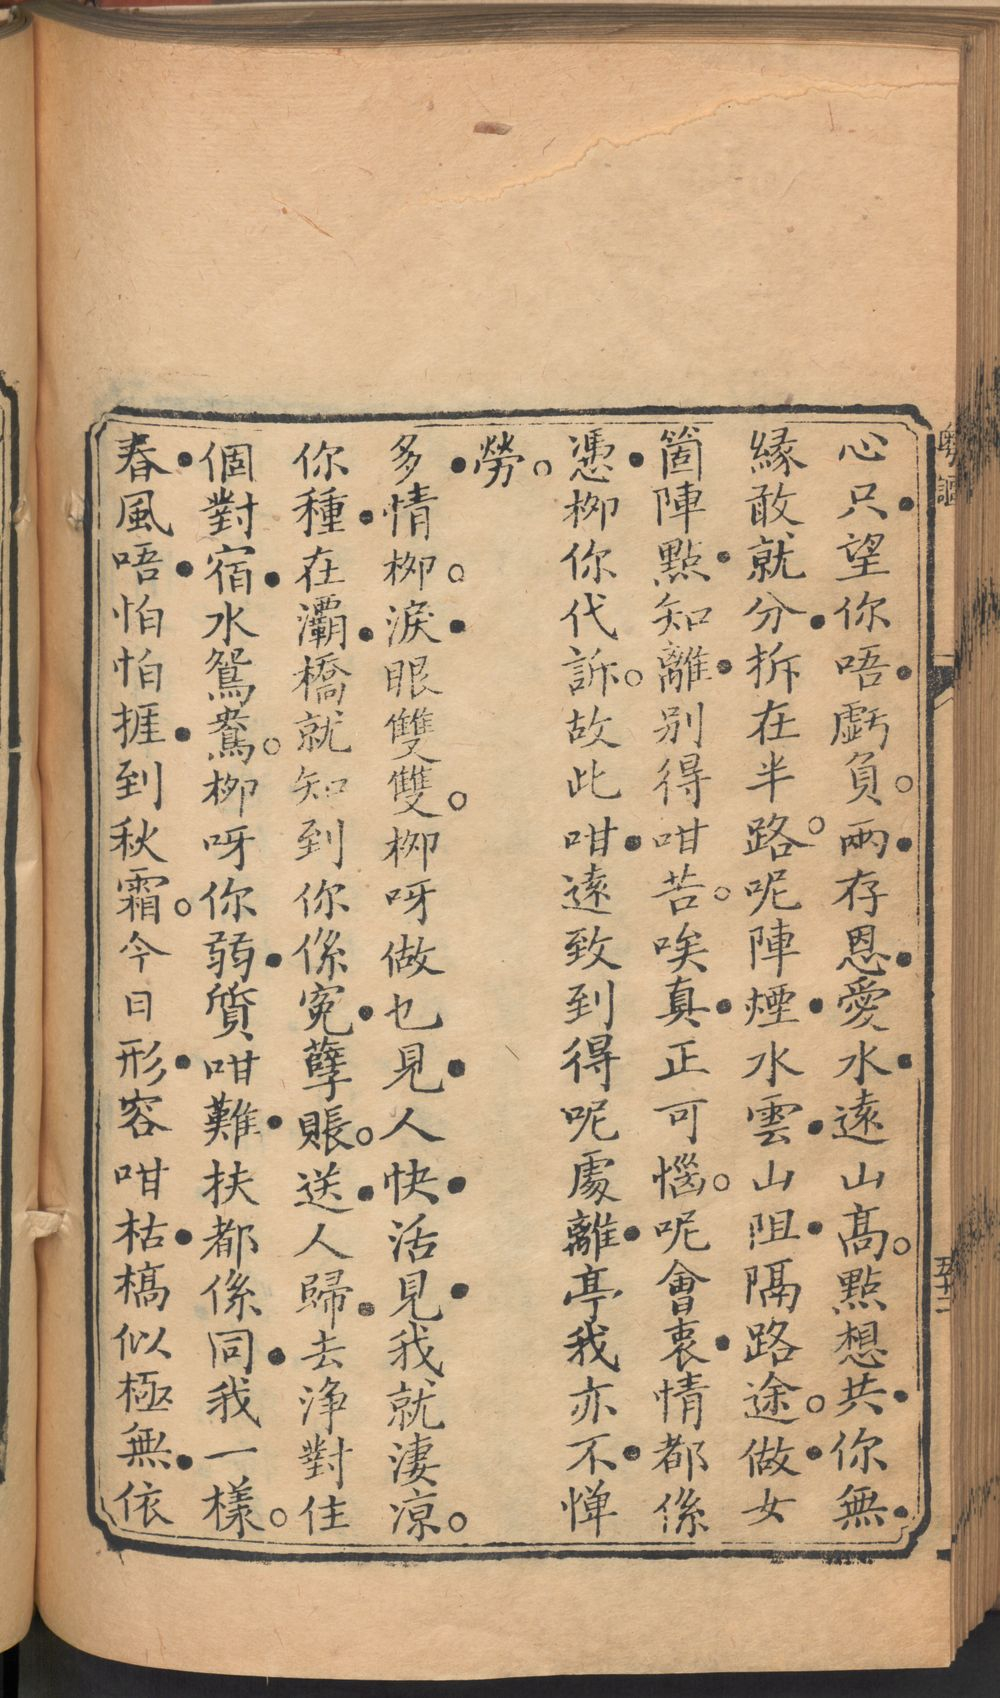 心只望你唔虧負。兩存恩愛水遠山高。點想共你無
緣敢就分拆在半路。呢陣煙水雲山阻隔路途。做女
箇陣點知離別得咁苦。唉真正可惱。呢會衷情都係
憑柳你代訴。故此咁遠致到得呢處離亭我亦不憚
勞。
多情柳。淚眼雙雙。柳呀做乜見人快活見我就淒涼。
你種在灞橋就知到你係冤孽賬。送人歸去淨對住
個對宿水鴛鴦。柳呀你弱質咁難扶都係同我一樣。
春風唔怕怕捱到秋霜。今日形容咁枯槁似極無依
粵謳
五十二